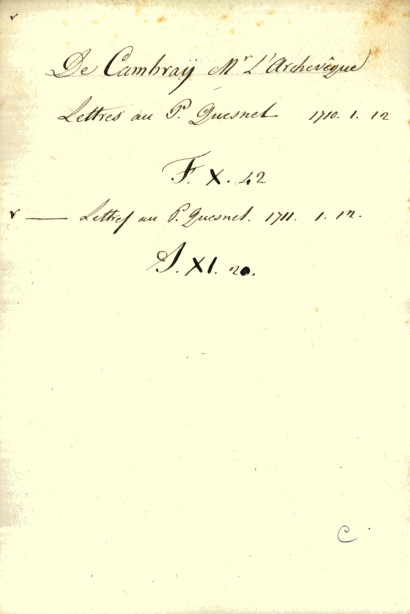 De Cambraÿ Mr L'Archevêque
Lettres au P. Quesnel 1710. 1. 12
F. X. 42
v — Lettres au P. Quesnel. 1711. 1. 12.
S. XI. 20.
C